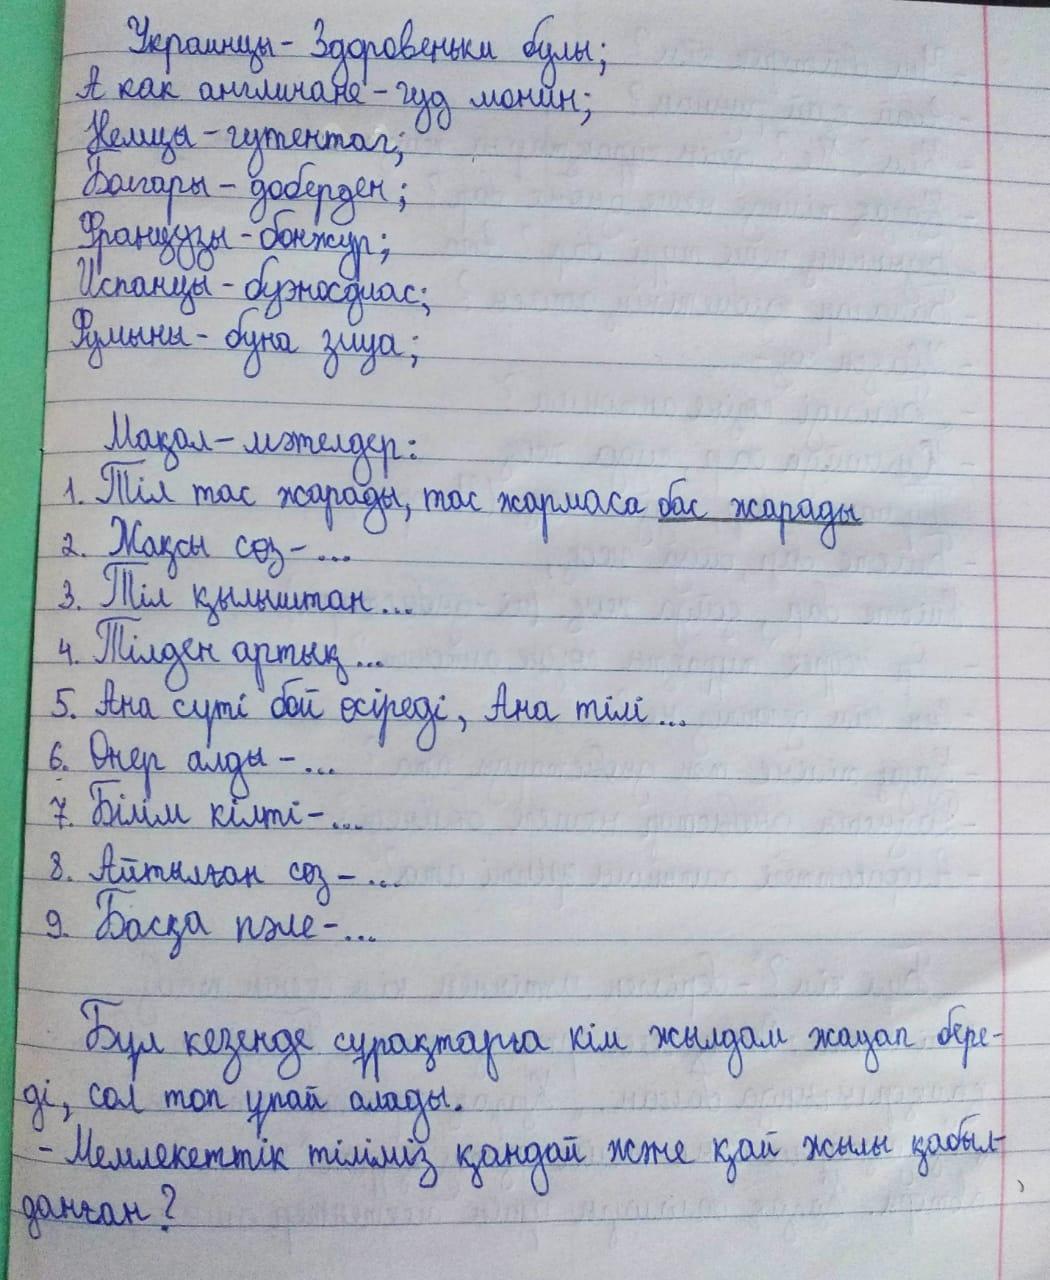 Украинцы - Здоровеньки булы;
А как англичане - гуд монин;
Немцы - гутентаг;
Болгары - доберден;
Французы - бонжур;
Испанцы - буэносдиас;
Румыны - буна зиуа;
Мақал - мәтелдер:
1. Тіл тас жарады, тас жармаса бас жарады
2. Жақсы сөз - ...
3. Тіл қылыштан ...
4. Тілден артық ...
5. Ана сүті бой өсіреді, Ана тілі ...
6. Өнер алды - ...
7. Білім кілті - ...
8. Айтылған сөз - ...
9. Басқа пәле - ...
Бұл кезенде сұрақтарға кім жылдам жауап бере-
ді, сол топ ұпай алады.
- Мемлекеттік тіліміз қандай және қай жылы қабыл-
данған?